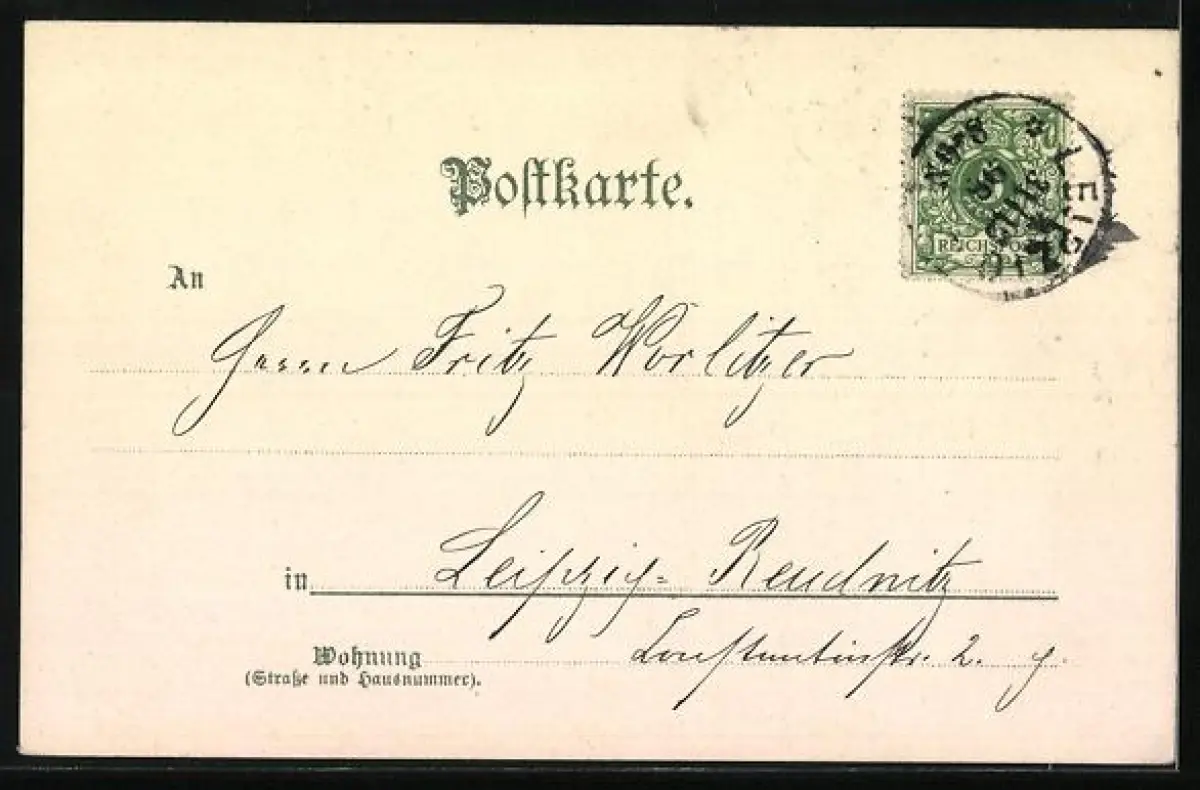 Postkarte.
REICHSPOST
LEIPZIG
An
Herrn Fritz Worlitzer
in Leipzig-Reudnitz
Wohnung Constantinstr. 2.
(Straße und Hausnummer).